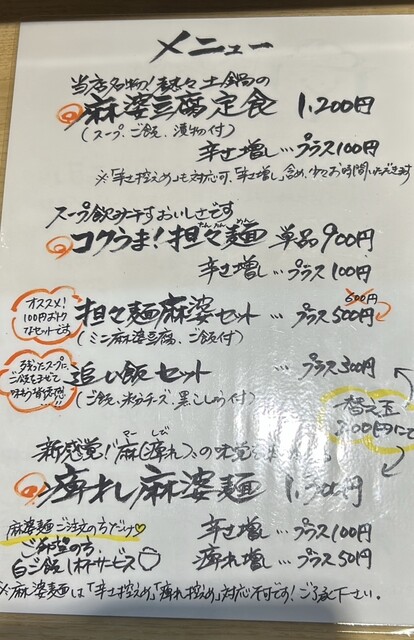 メニュー
当店名物！熱々土鍋の
麻婆豆腐定食 1,200円
(スープ、ご飯、漬物付)
辛さ増し… プラス100円
※「辛さ控えめ」も対応可、「辛さ増し」含め、少々お時間いただきます
スープ飲み干すおいしさです
コクうま！担々麺 単品900円
たんたんめん
辛さ増し… プラス100円
オススメ！
100円おトク
なセットです
担々麺麻婆セット … プラス500円
600円
(ミニ麻婆豆腐、ご飯付)
残ったスープに
ご飯をまぜて
味わう背徳感!!
追い飯セット … プラス300円
(ご飯、粉チーズ、黒こしょう付)
替え玉
200円にて
新感覚！麻(痺れ)、の味覚
マー しび
痺れ麻婆麺 1,300円
麻婆麺ご注文の方だけ♡
ご希望の方、
白ご飯1杯サービス
辛さ増し… プラス100円
痺れ増し… プラス50円
※麻婆麺は「辛さ控えめ」「痺れ控えめ」対応不可です！ご了承下さい。